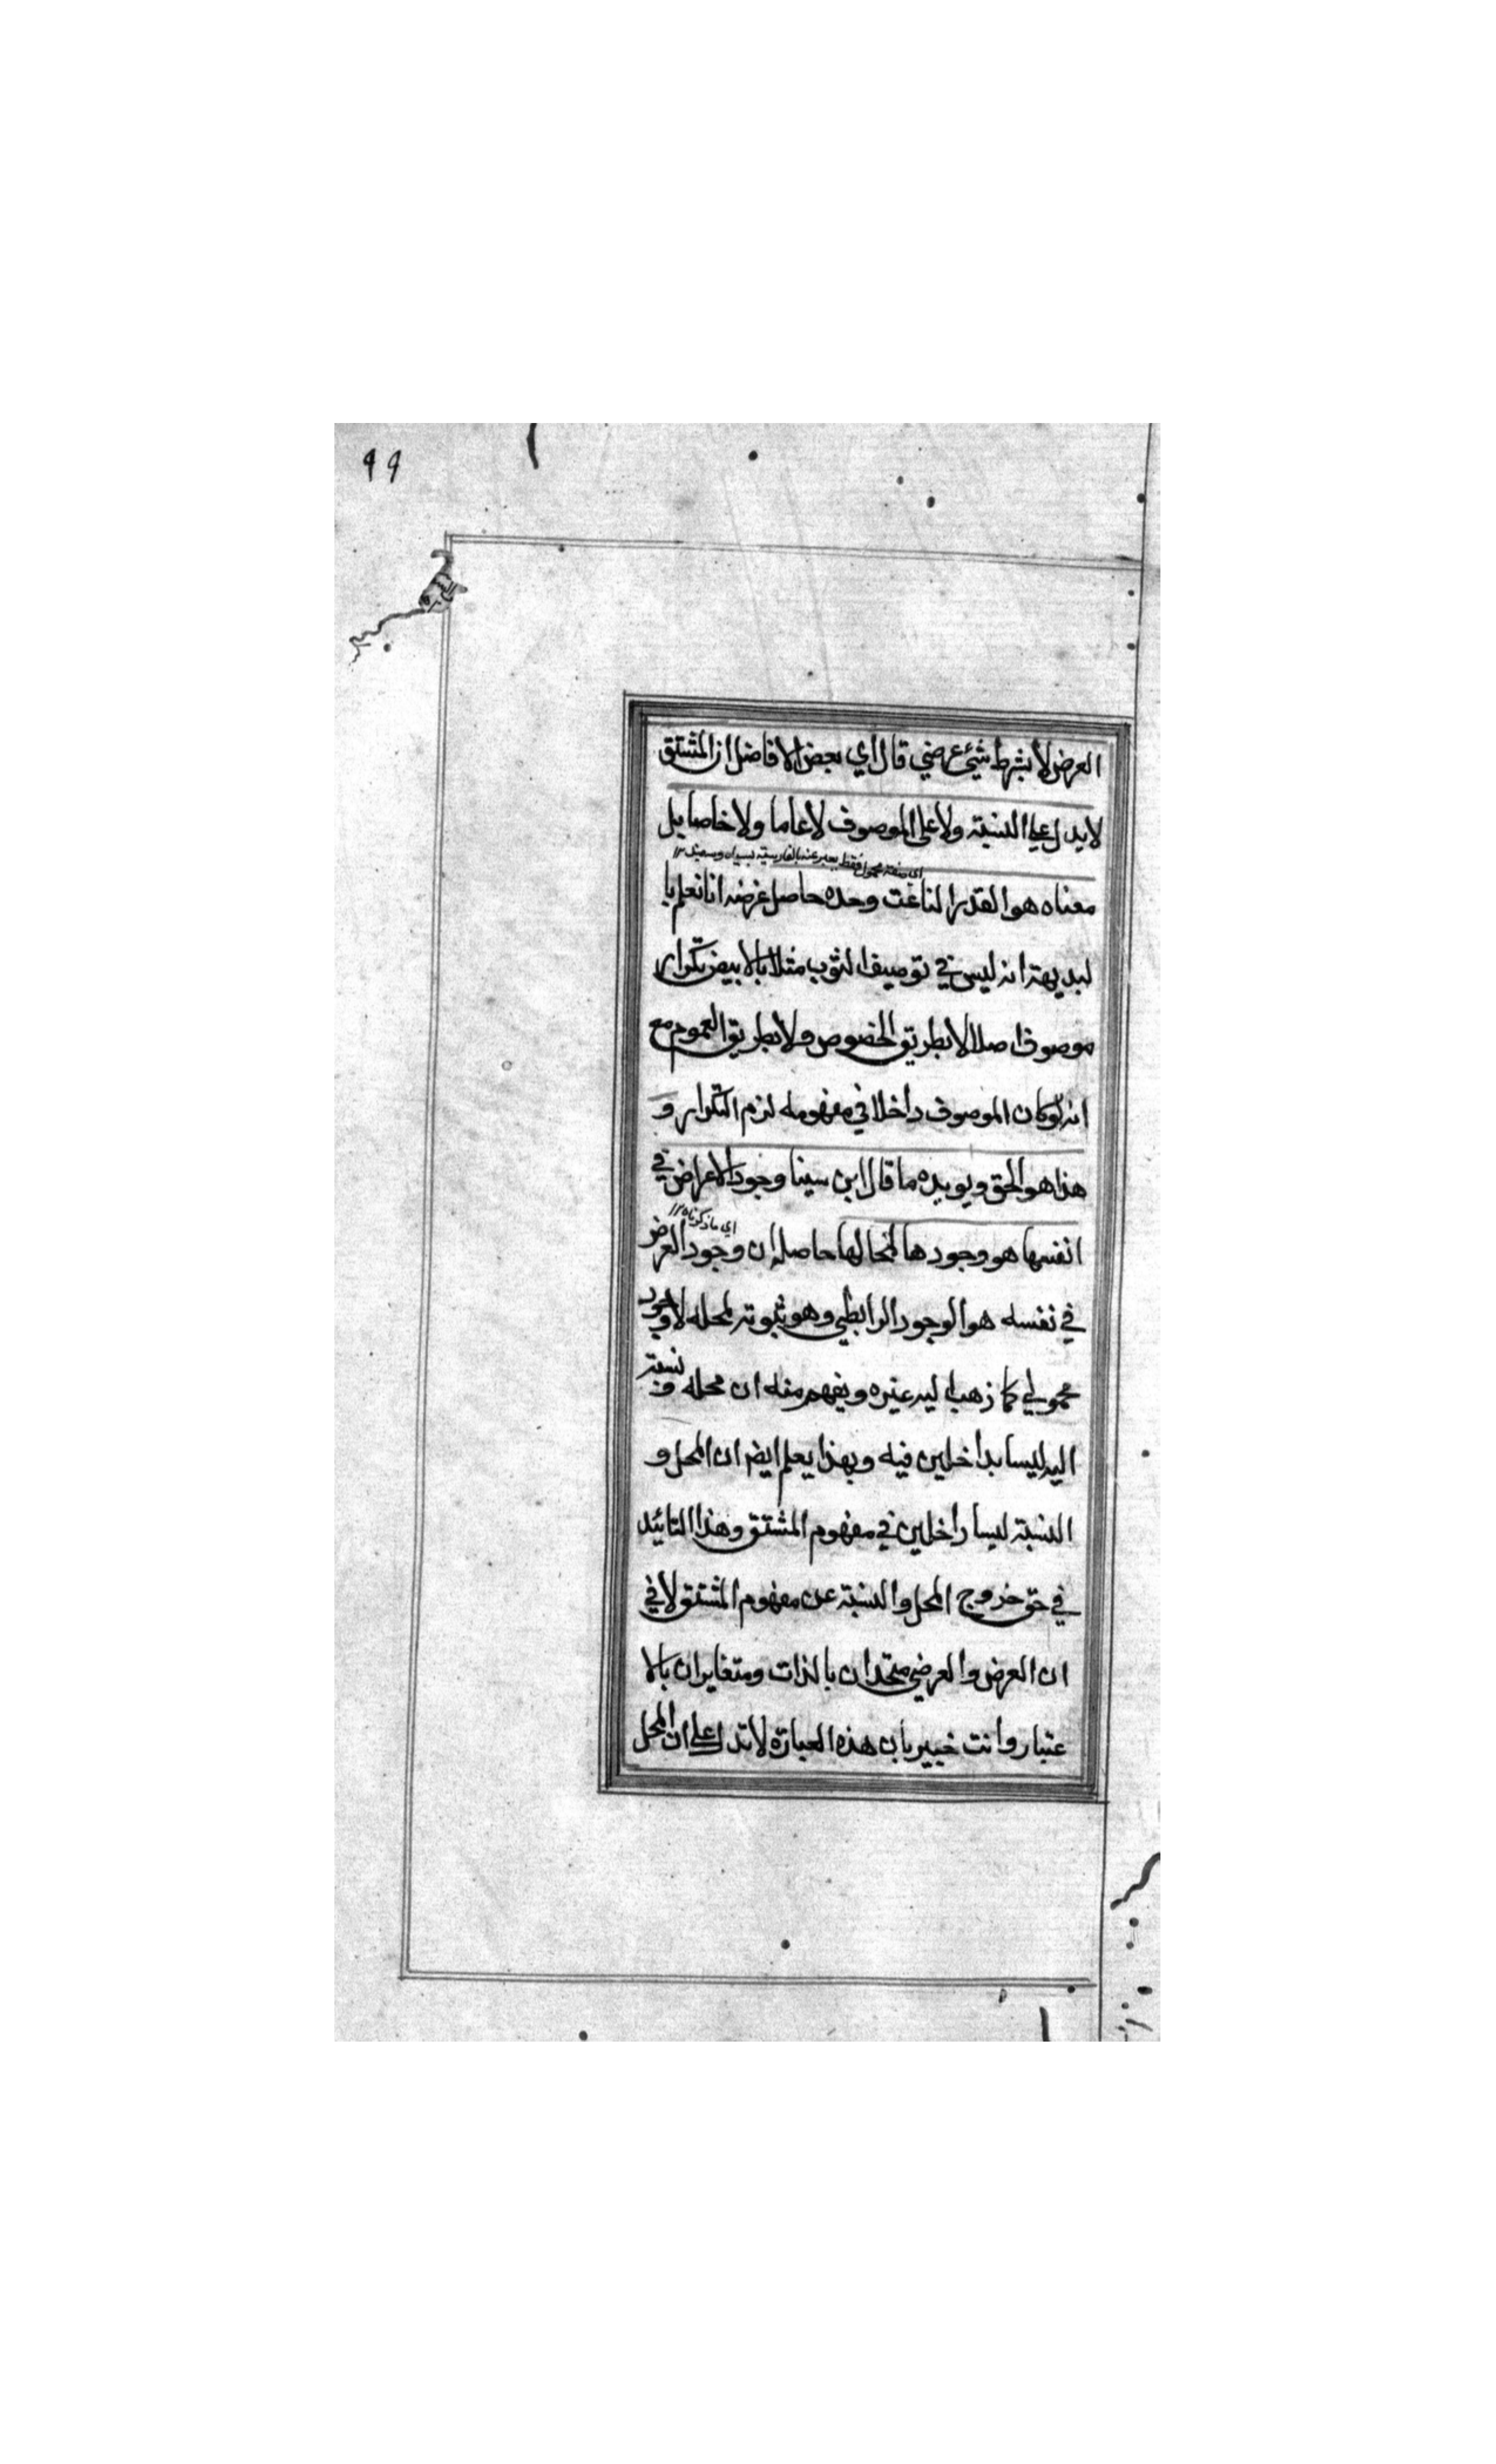 ٩٩
العرض لا بشرط شيئ عرضي قال اي بعض الافاضل ان المشتق
لا يدل على النسبة ولا على الموصوف لا عاما ولا خاصا بل
اي صفة محمول فقط يعبر عنه بالفارسية بسياه وسفيد ١٢
معناه هو القدر الناعت وحده حاصل غرضه انا نعلم با
لبديهة انه ليس في توصيف الثوب مثلا بالابيض تكرار
موصوف اصلا لا بطريق الخصوص ولا بطريق العموم مع
انه لو كان الموصوف داخلا في مفهومه لزم التكرار و
هذا هو الحق ويويده ما قال ابن سينا وجود الاعراض في
اي ما ذكرناه ١٢
انفسها هو وجودها لمحالها حاصله ان وجود العرض
في نفسه هو الوجود الرابطي وهو ثبوته لمحله لا وجود
محمولي كما ذهب اليه غيره ويفهم منه ان محله و نسبته
اليه ليسا بداخلين فيه وبهذا يعلم ايضا ان المحل و
النسبة ليسا داخلين في مفهوم المشتق وهذا التائيد
في حق خروج المحل والنسبة عن مفهوم المشتق لا في
ان العرض والعرضي متحدان بالذات ومتغايران بالا
عتبار وانت خبير بان هذه العبارة لا تدل على ان المحل